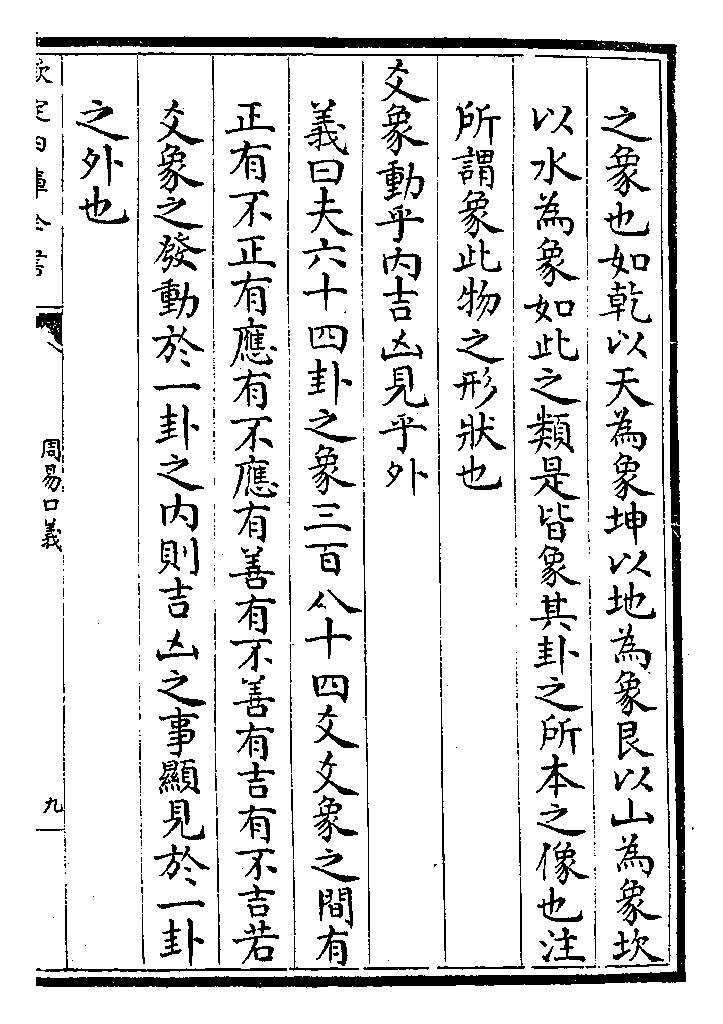 之象也如乾以天為象坤以地為象艮以山為象坎
以水為象如此之類是皆象其卦之所本之像也注
所謂象此物之形狀也
爻象動乎内吉凶見乎外
義曰夫六十四卦之象三百八十四爻爻象之間有
正有不正有應有不應有善有不善有吉有不吉若
爻象之發動於一卦之内則吉凶之事顯見於一卦
之外也
欽定四庫全書
周易口義
九